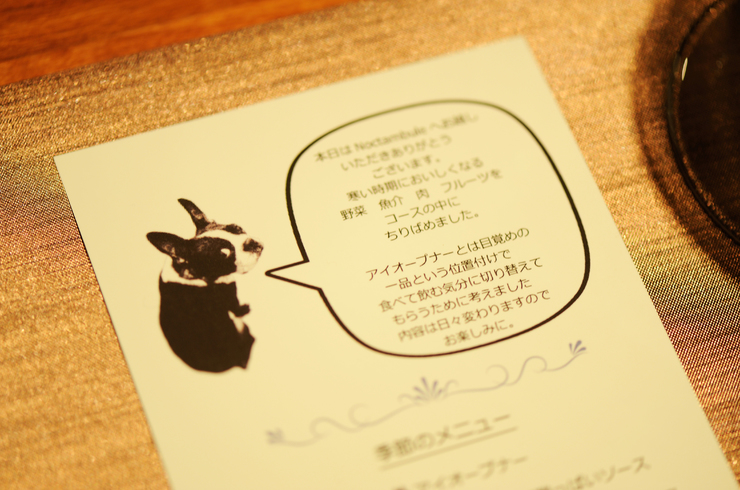 本日は Noctambule へお越し
いただきありがとう
ございます。
寒い時期においしくなる
野菜 魚介 肉 フルーツを
コースの中に
ちりばめました。
アイオープナーとは目覚めの
一品という位置付けで
食べて飲む気分に切り替えて
もらうために考えました
内容は日々変わりますので
お楽しみに。
季節のメニュー
アイオープナー
ソース